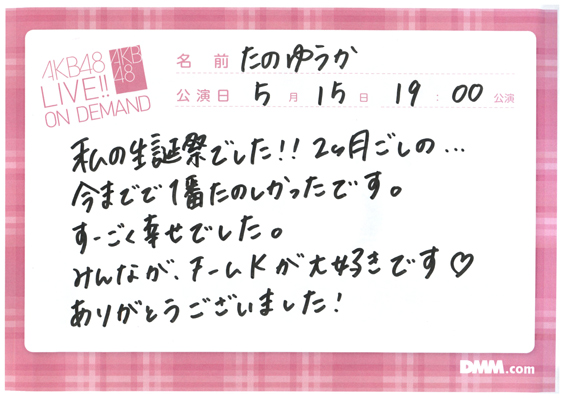 AKB48
LIVE!!
ON DEMAND
AKB
48
名前 たのゆうか
公演日 5月15日 19:00公演
私の生誕祭でした!! 2ヶ月ごしの…
今までで1番たのしかったです。
すーごく幸せでした。
みんなが、チームKが大好きです♡
ありがとうございました!
DMM.com